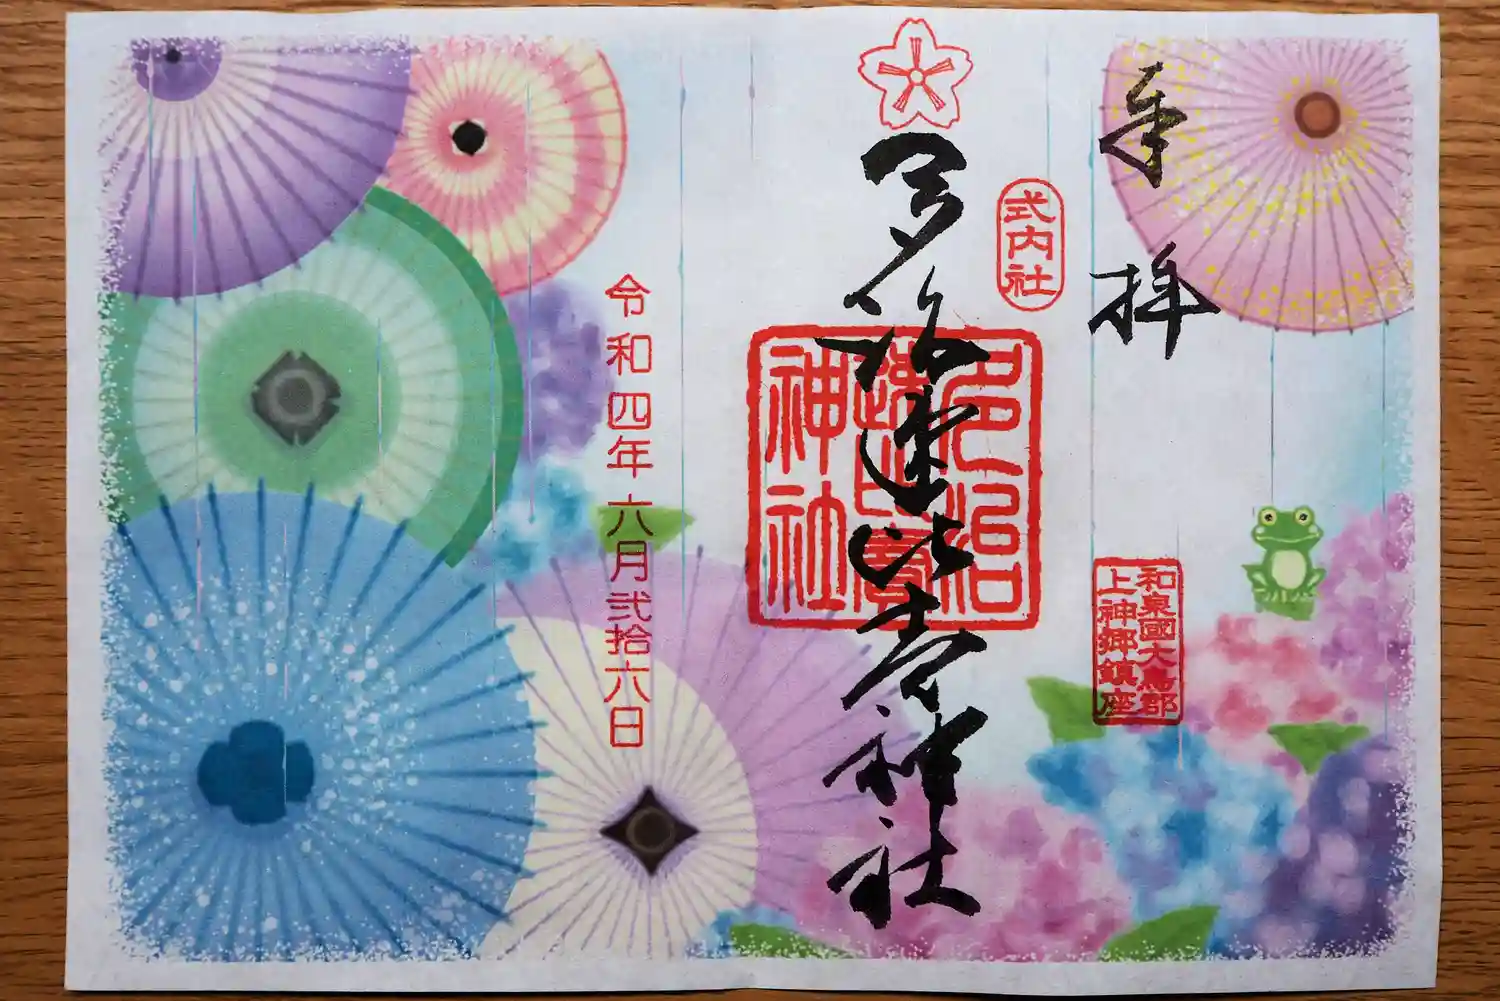 奉拝
式内社
和泉國大鳥郡
上神郷鎮座
多治速比売神社
多治
速比賣
神社
令和四年六月弐拾六日